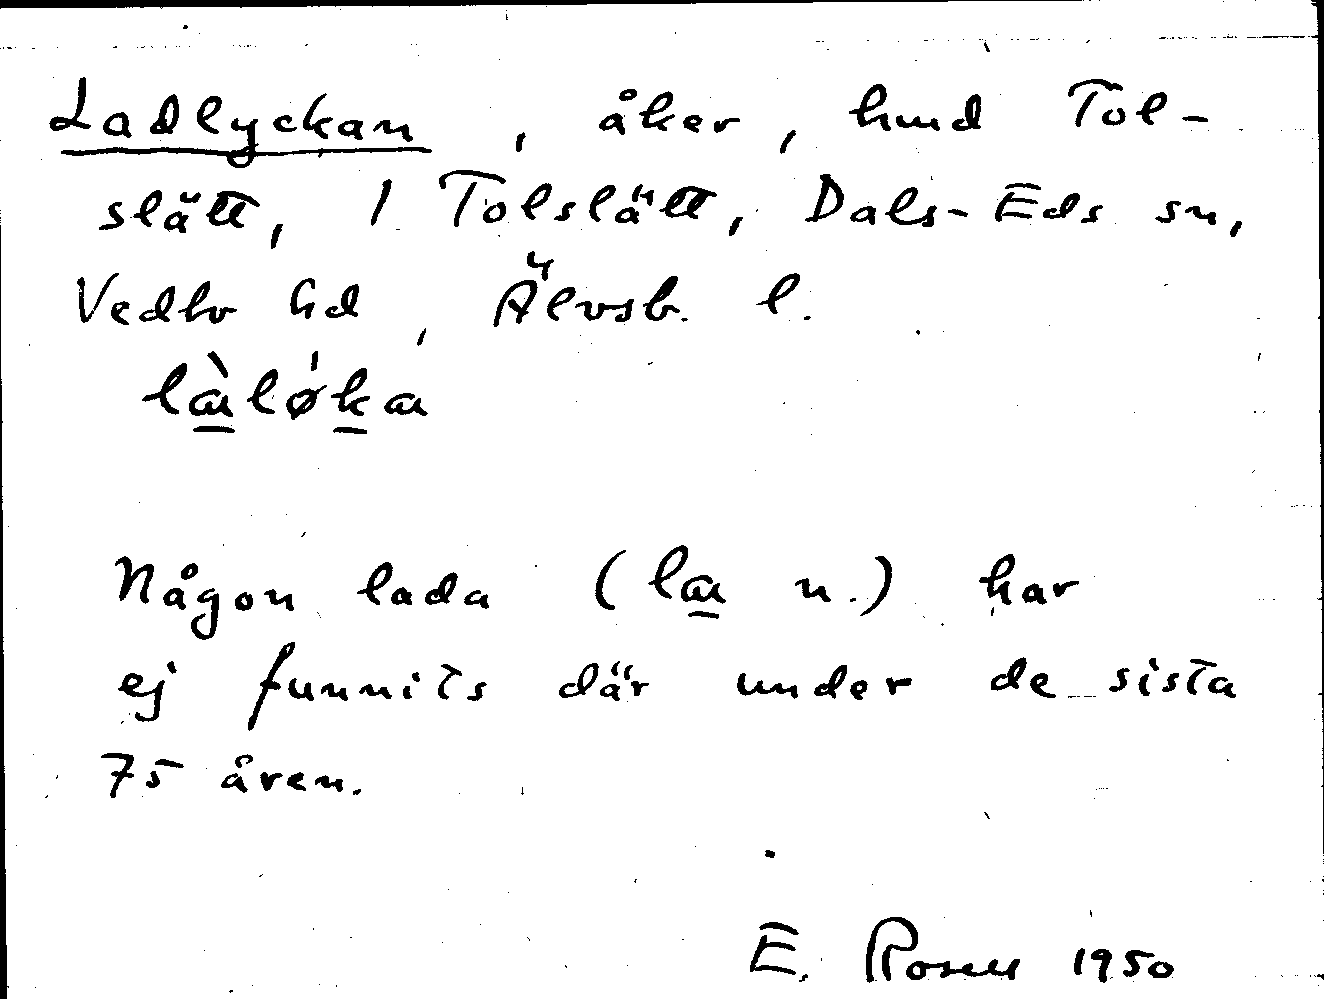 Ladlyckan, åker, hmd Tol-
slätt, 1 Tolslätt, Dals-Eds sn,
Vedbo hd, Älvsb. l.
là̱lø̍ḵa
Någon lada (la̱ n.) har
ej funnits där under de sista
75 åren.
E. Rosell 1950